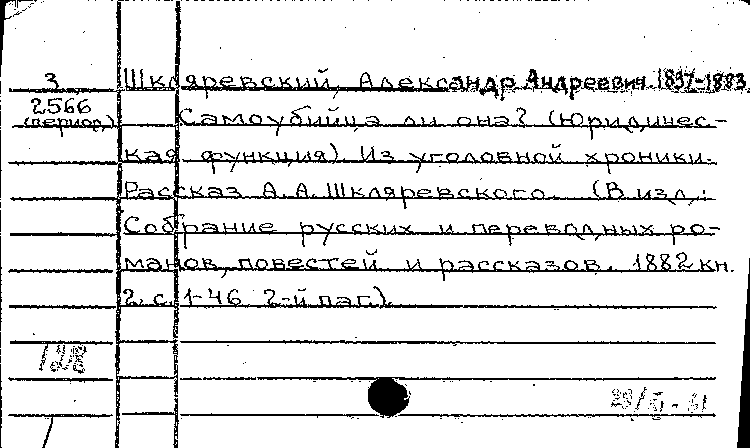 3 Шкляревский, Александр Андреевич 1837-1883
2566 Самоубийца ли она? (Юридичес-
(период.)
кая функция). Из уголовной хроники.
Рассказ А. А. Шкляревского. (В изд.:
Собрание русских и переводных ро-
манов, повестей и рассказов. 1882 кн.
2. с. 1-46 2-й паг.).
128